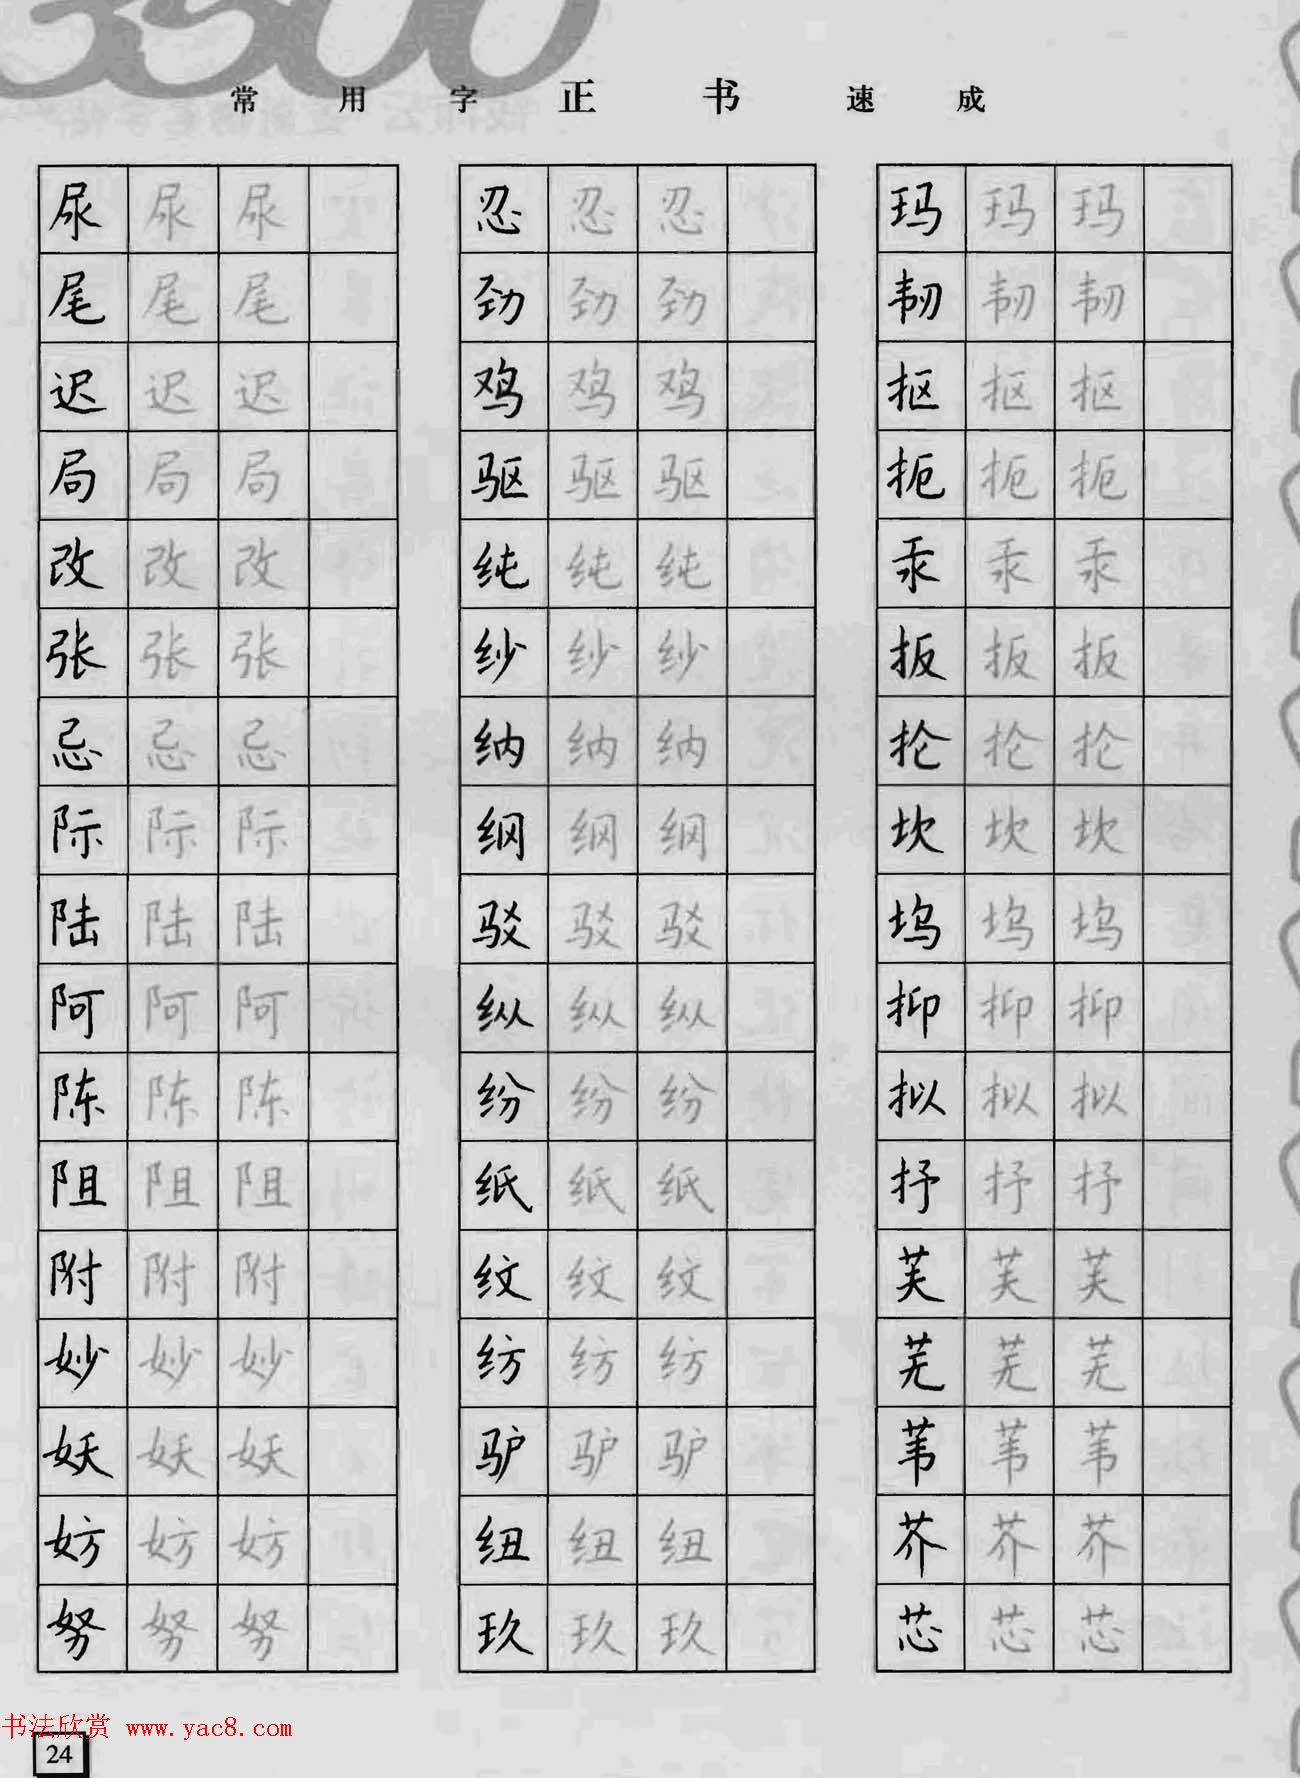 3500
常用字正书速成
尿 尿 尿 忍 忍 忍 玛 玛 玛
尾 尾 尾 劲 劲 劲 韧 韧 韧
迟 迟 迟 鸡 鸡 鸡 抠 抠 抠
局 局 局 驱 驱 驱 扼 扼 扼
改 改 改 纯 纯 纯 汞 汞 汞
张 张 张 纱 纱 纱 扳 扳 扳
忌 忌 忌 纳 纳 纳 抡 抡 抡
际 际 际 纲 纲 纲 坎 坎 坎
陆 陆 陆 驳 驳 驳 坞 坞 坞
阿 阿 阿 纵 纵 纵 抑 抑 抑
陈 陈 陈 纷 纷 纷 拟 拟 拟
阻 阻 阻 纸 纸 纸 抒 抒 抒
附 附 附 纹 纹 纹 芙 芙 芙
妙 妙 妙 纺 纺 纺 芜 芜 芜
妖 妖 妖 驴 驴 驴 苇 苇 苇
妨 妨 妨 纽 纽 纽 芥 芥 芥
努 努 努 玖 玖 玖 芯 芯 芯
书法欣赏 www.yac8.com
24